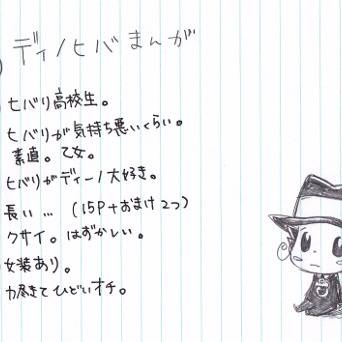 ディノヒバまんが
ヒバリ高校生。
ヒバリが気持ち悪いくらい。
素直。乙女。
ヒバリがディーノ大好き。
長い … (15P+おまけ2つ)
クサイ。はずかしい。
女装あり。
力尽きてひどいオチ。